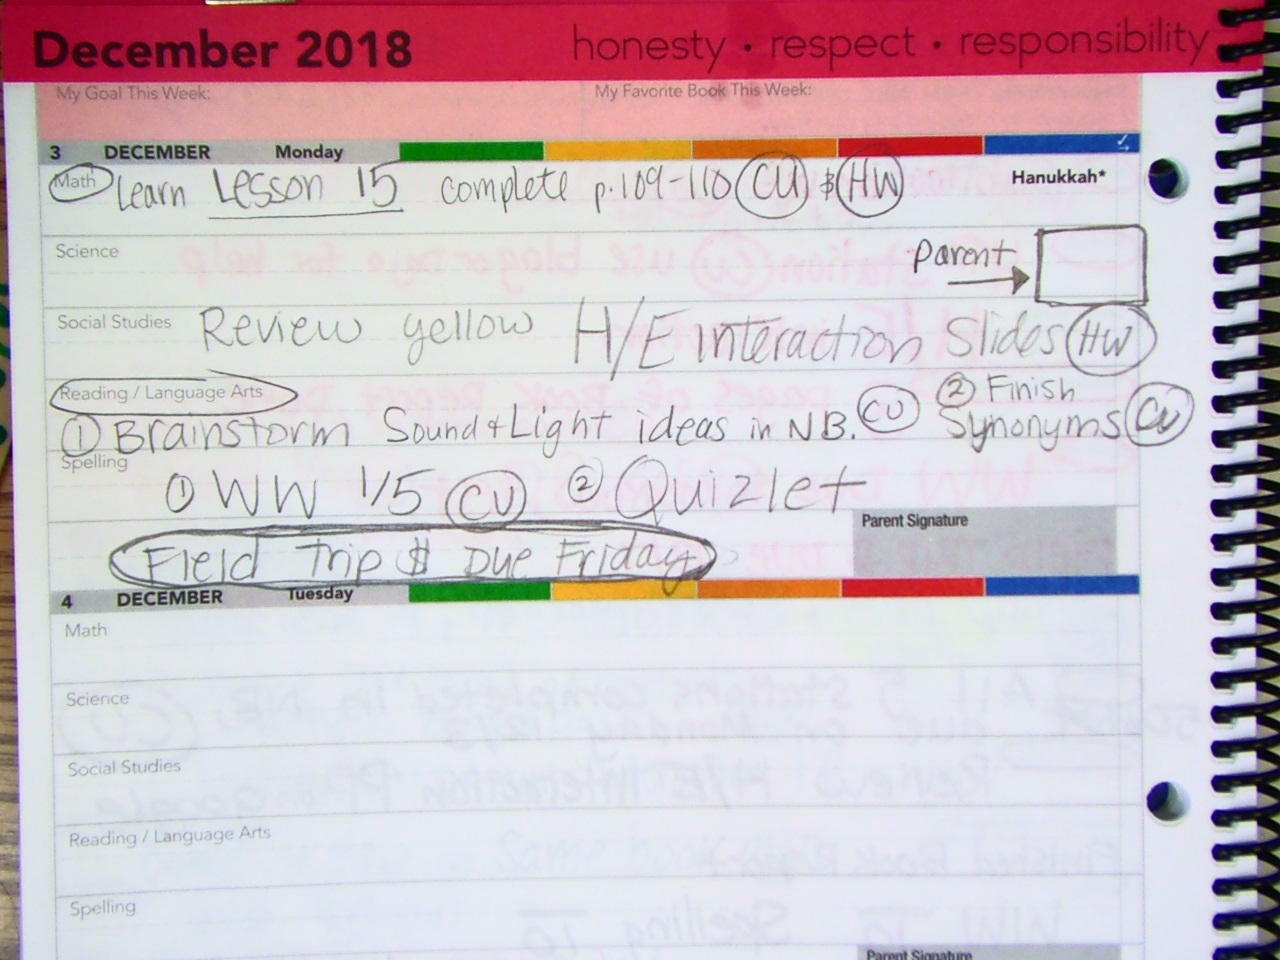 December 2018 honesty • respect • responsibility
My Goal This Week: My Favorite Book This Week:
3 DECEMBER Monday
Math Learn Lesson 15 complete p.109-110 CU & HW Hanukkah*
Science Parent →
Social Studies Review yellow H/E Interaction Slides HW
Reading / Language Arts
① Brainstorm Sound + Light ideas in NB. CU ② Finish Synonyms CU
Spelling
① WW 1/5 CU ② Quizlet
Parent Signature
Field Trip $ Due Friday
4 DECEMBER Tuesday
Math
Science
Social Studies
Reading / Language Arts
Spelling
Parent Signature